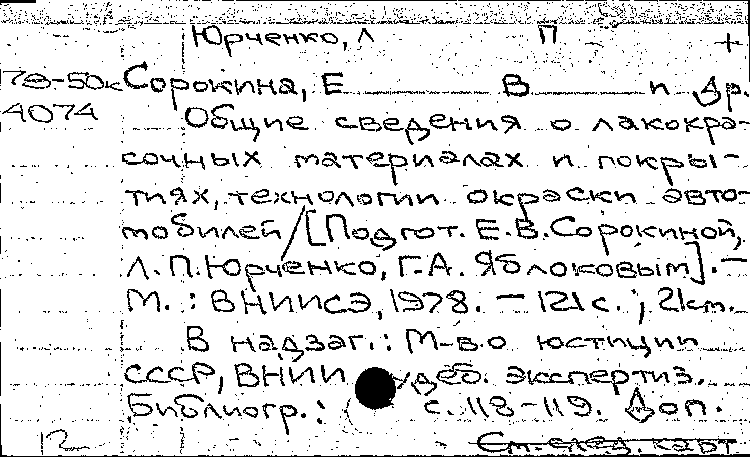 Юрченко, Л П +
78-50к Сорокина, Е В и др.
4074 Общие сведения о лакокра-
сочных материалах и покры-
тиях, технологии окраски авто-
мобилей / [Подгот. Е.В. Сорокиной,
Л.П. Юрченко, Г.А. Яблоковым]. –
М. : ВНИИСЭ, 1978. – 121 с. ; 21 см.
В надзаг.: М-во юстиции
СССР, ВНИИ судеб. экспертиз.
Библиогр.: с. 118-119. Доп.
12 См. след. карт